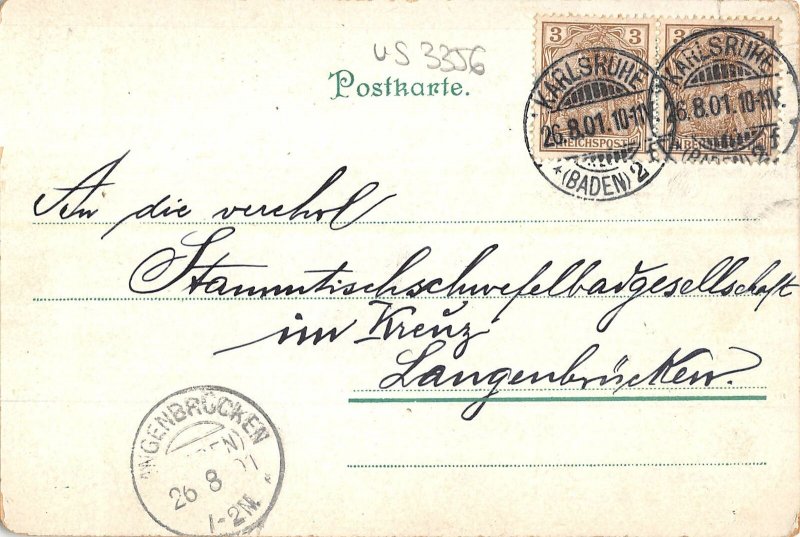 US 3356
Postkarte.
3 3 3
REICHSPOST
KARLSRUHE
26.8.01.10-11V.
*(BADEN) 2 f
KARLSRUHE
26.8.01.10-11V.
*(BADEN) 2 f
An die verehrl
Stammtischschwefelbadgesellschaft
im Kreuz
Langenbrücken.
LANGENBRÜCKEN
(BADEN)
26 8 01
1-2N.